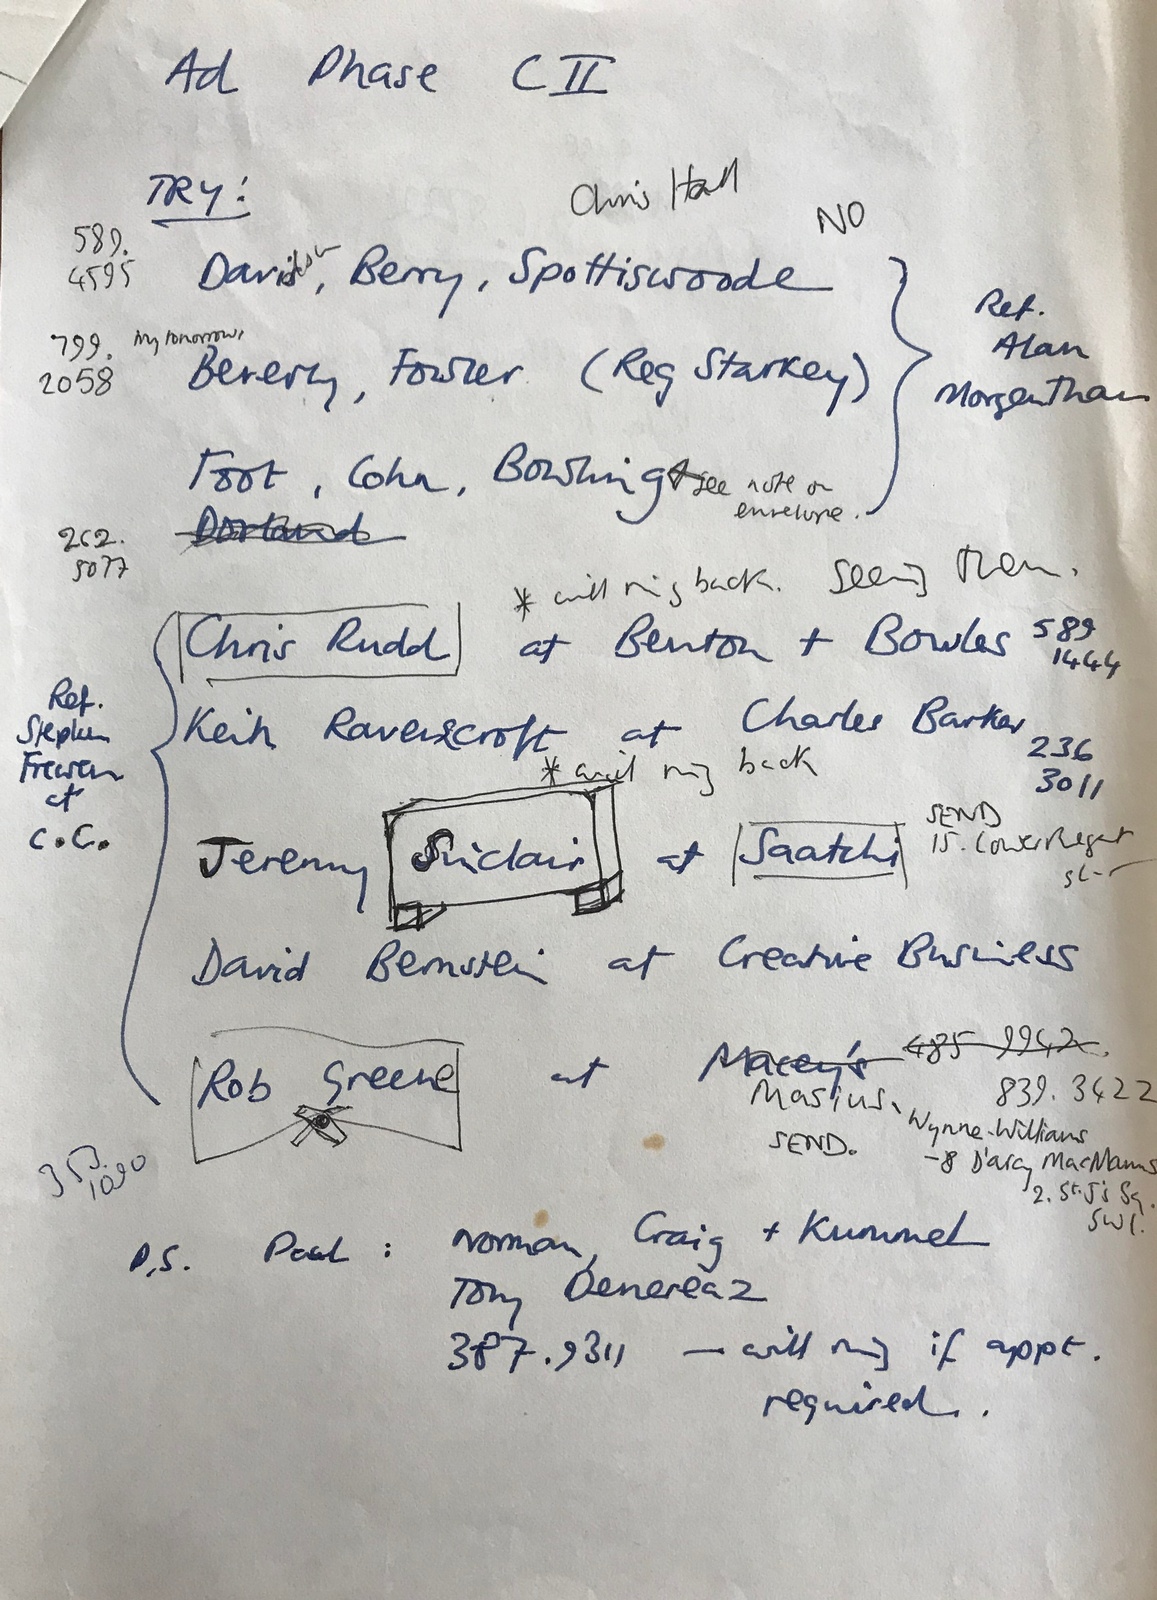 Ad Phase C II
TRY:
Chris Hall
NO
589.
4595
Davidson, Berry, Spottiswoode
799.
2058
try tomorrow
Beverly, Fowler (Reg Starkey)
Ref.
Alan
Morgenthau
Foot, Cohn, Bowling
see note on
envelope.
Dorland
262.
5077
* will ring back. Seeing them.
Chris Rudd at Benton + Bowles 589
1444
Ref.
Stephen
Frewen
at
C.C.
Keith Ravenscroft at Charles Barker
236
3011
* will ring back
Jeremy Sinclair at Saatchi
SEND
15. Lower Regent
St
David Bernstein at Creative Business
Rob Greene at Macey's 485 9942
Masius, 839. 3422
Wynne-Williams
SEND.
D'arcy MacManus
2. St. J's Sq.
SW1.
353.
1090
P.S. Paul : Norman, Craig + Kummel
Tony Denereaz
387.9311 — will ring if appt.
required.